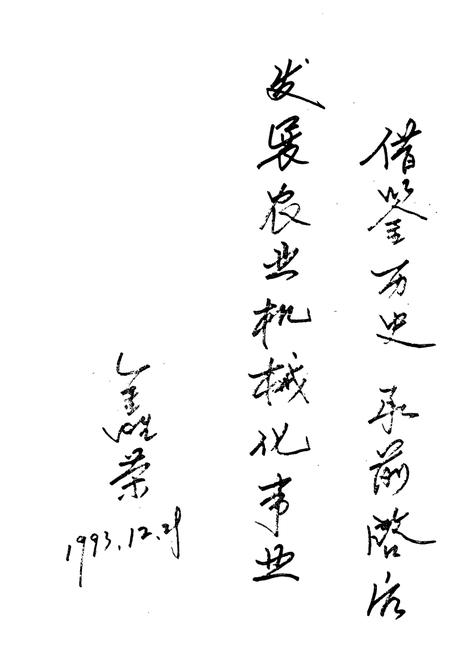 借鉴历史 承前啓后
发展农业机械化事业
荣
1993.12.21